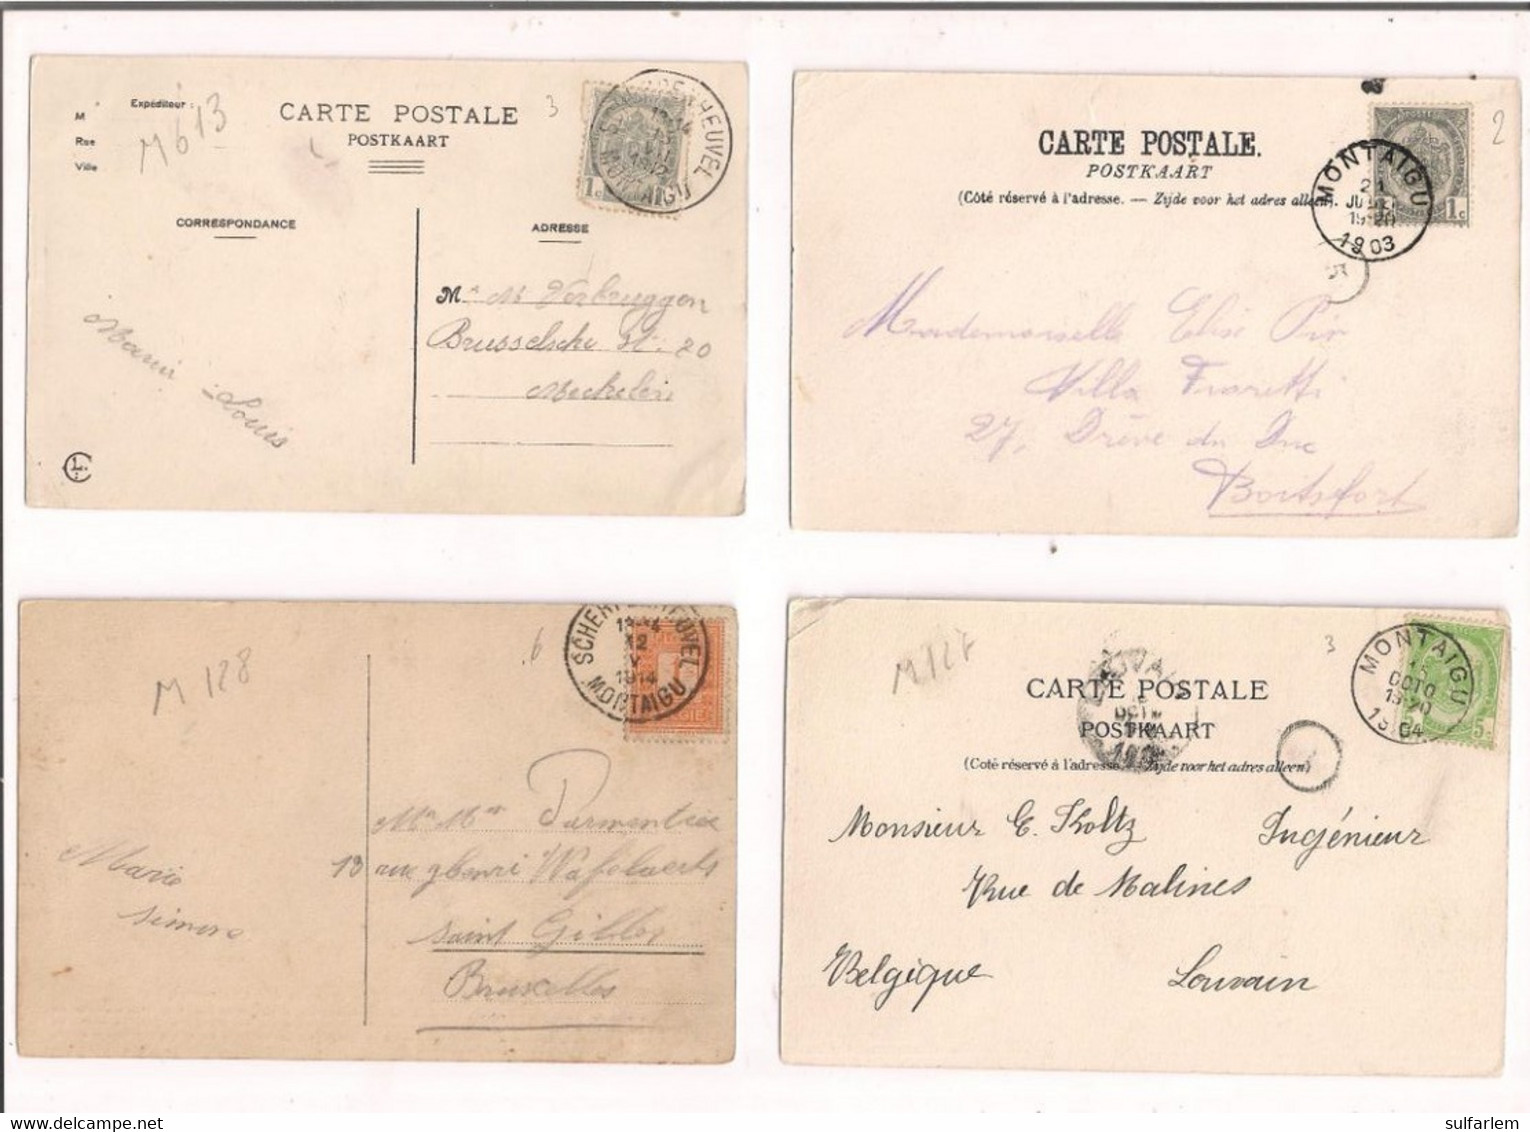 M
Rue
Ville
Expéditeur :
M 613
CARTE POSTALE
POSTKAART
3
MONTAIGU
1c
CORRESPONDANCE
ADRESSE
M M Verbruggen
Brusselsche St. 20
Mechelen
Louis
L.C.
CARTE POSTALE.
POSTKAART
(Côté réservé à l'adresse. — Zijde voor het adres alleen.)
2
MONTAIGU
21
1903
1c
Mademoiselle Elise Pir
Villa
27, Drève du Duc
Boitsfort
M 128
6
SCHERPENHEUVEL
12
V
1914
MONTAIGU
Parmentier
13 rue Henri Wafelaerts
Saint Gilles
Bruxelles
Marie
Simone
CARTE POSTALE
POSTKAART
(Coté réservé à l'adresse. — Zijde voor het adres alleen)
3
MONTAIGU
OCTO
1904
5c
Monsieur E. Koltz Ingénieur
Rue de Malines
Belgique Louvain
delcampe.net
sulfarlem